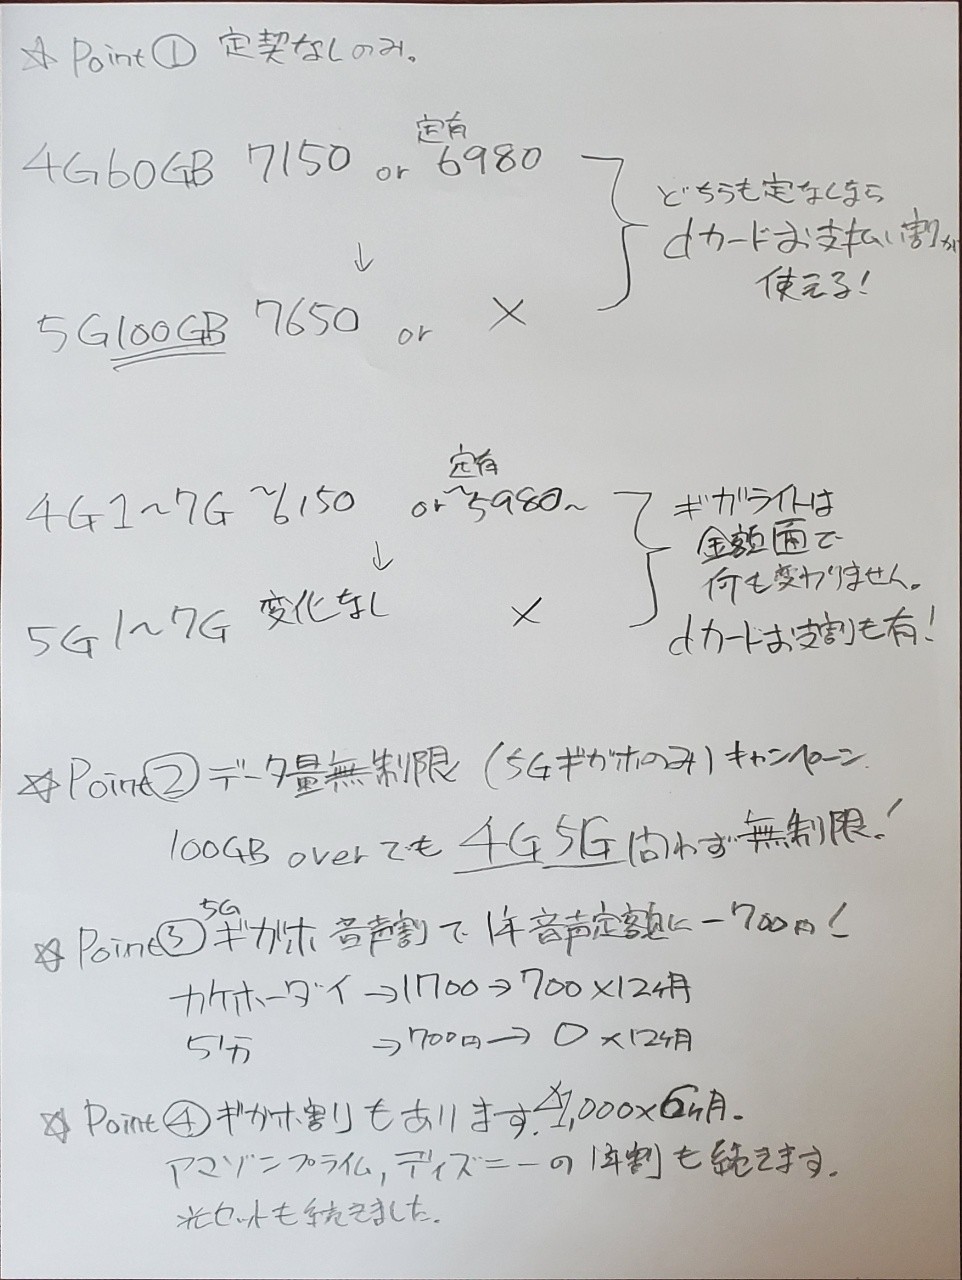 ☆ Point① 定契なしのみ。
4G60GB 7150 or 定有 6980
どちらも定なしなら
dカードお支払い割が
使える!
↓
5G100GB 7650 or ×
4G1〜7G 〜6150 or 定有 〜5980〜
ギガライトは
金額面で
何も変わりません。
dカードお支割も有!
↓
5G1〜7G 変化なし ×
☆ Point② データ量無制限 (5Gギガホのみ) キャンペーン.
100GB overでも 4G 5G 問わず無制限!
☆ Point③ 5Gギガホ 音声割で 1年音声定額に -700円!
カケホーダイ →1700→700×12ヶ月
5分 →700円→ 0 ×12ヶ月
☆ Point④ ギガホ割りもあります. 1,000×6ヶ月.
アマゾンプライム, ディズニーの 1年割も続きます.
光セットも続きました.